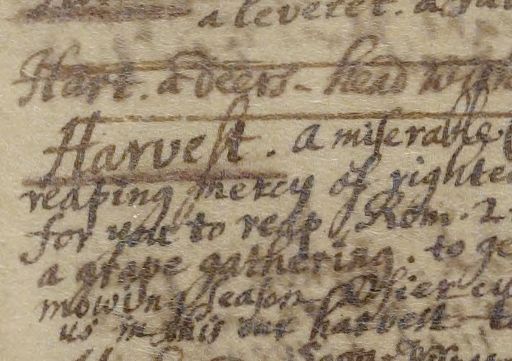 a leveret. a
Hart. a deers-head with
Harvest. a miserable
reaping mercy of righte
for you to reap Rom. 2
a grape gathering. to ge
mowing season. Mercy
us in this our harvest